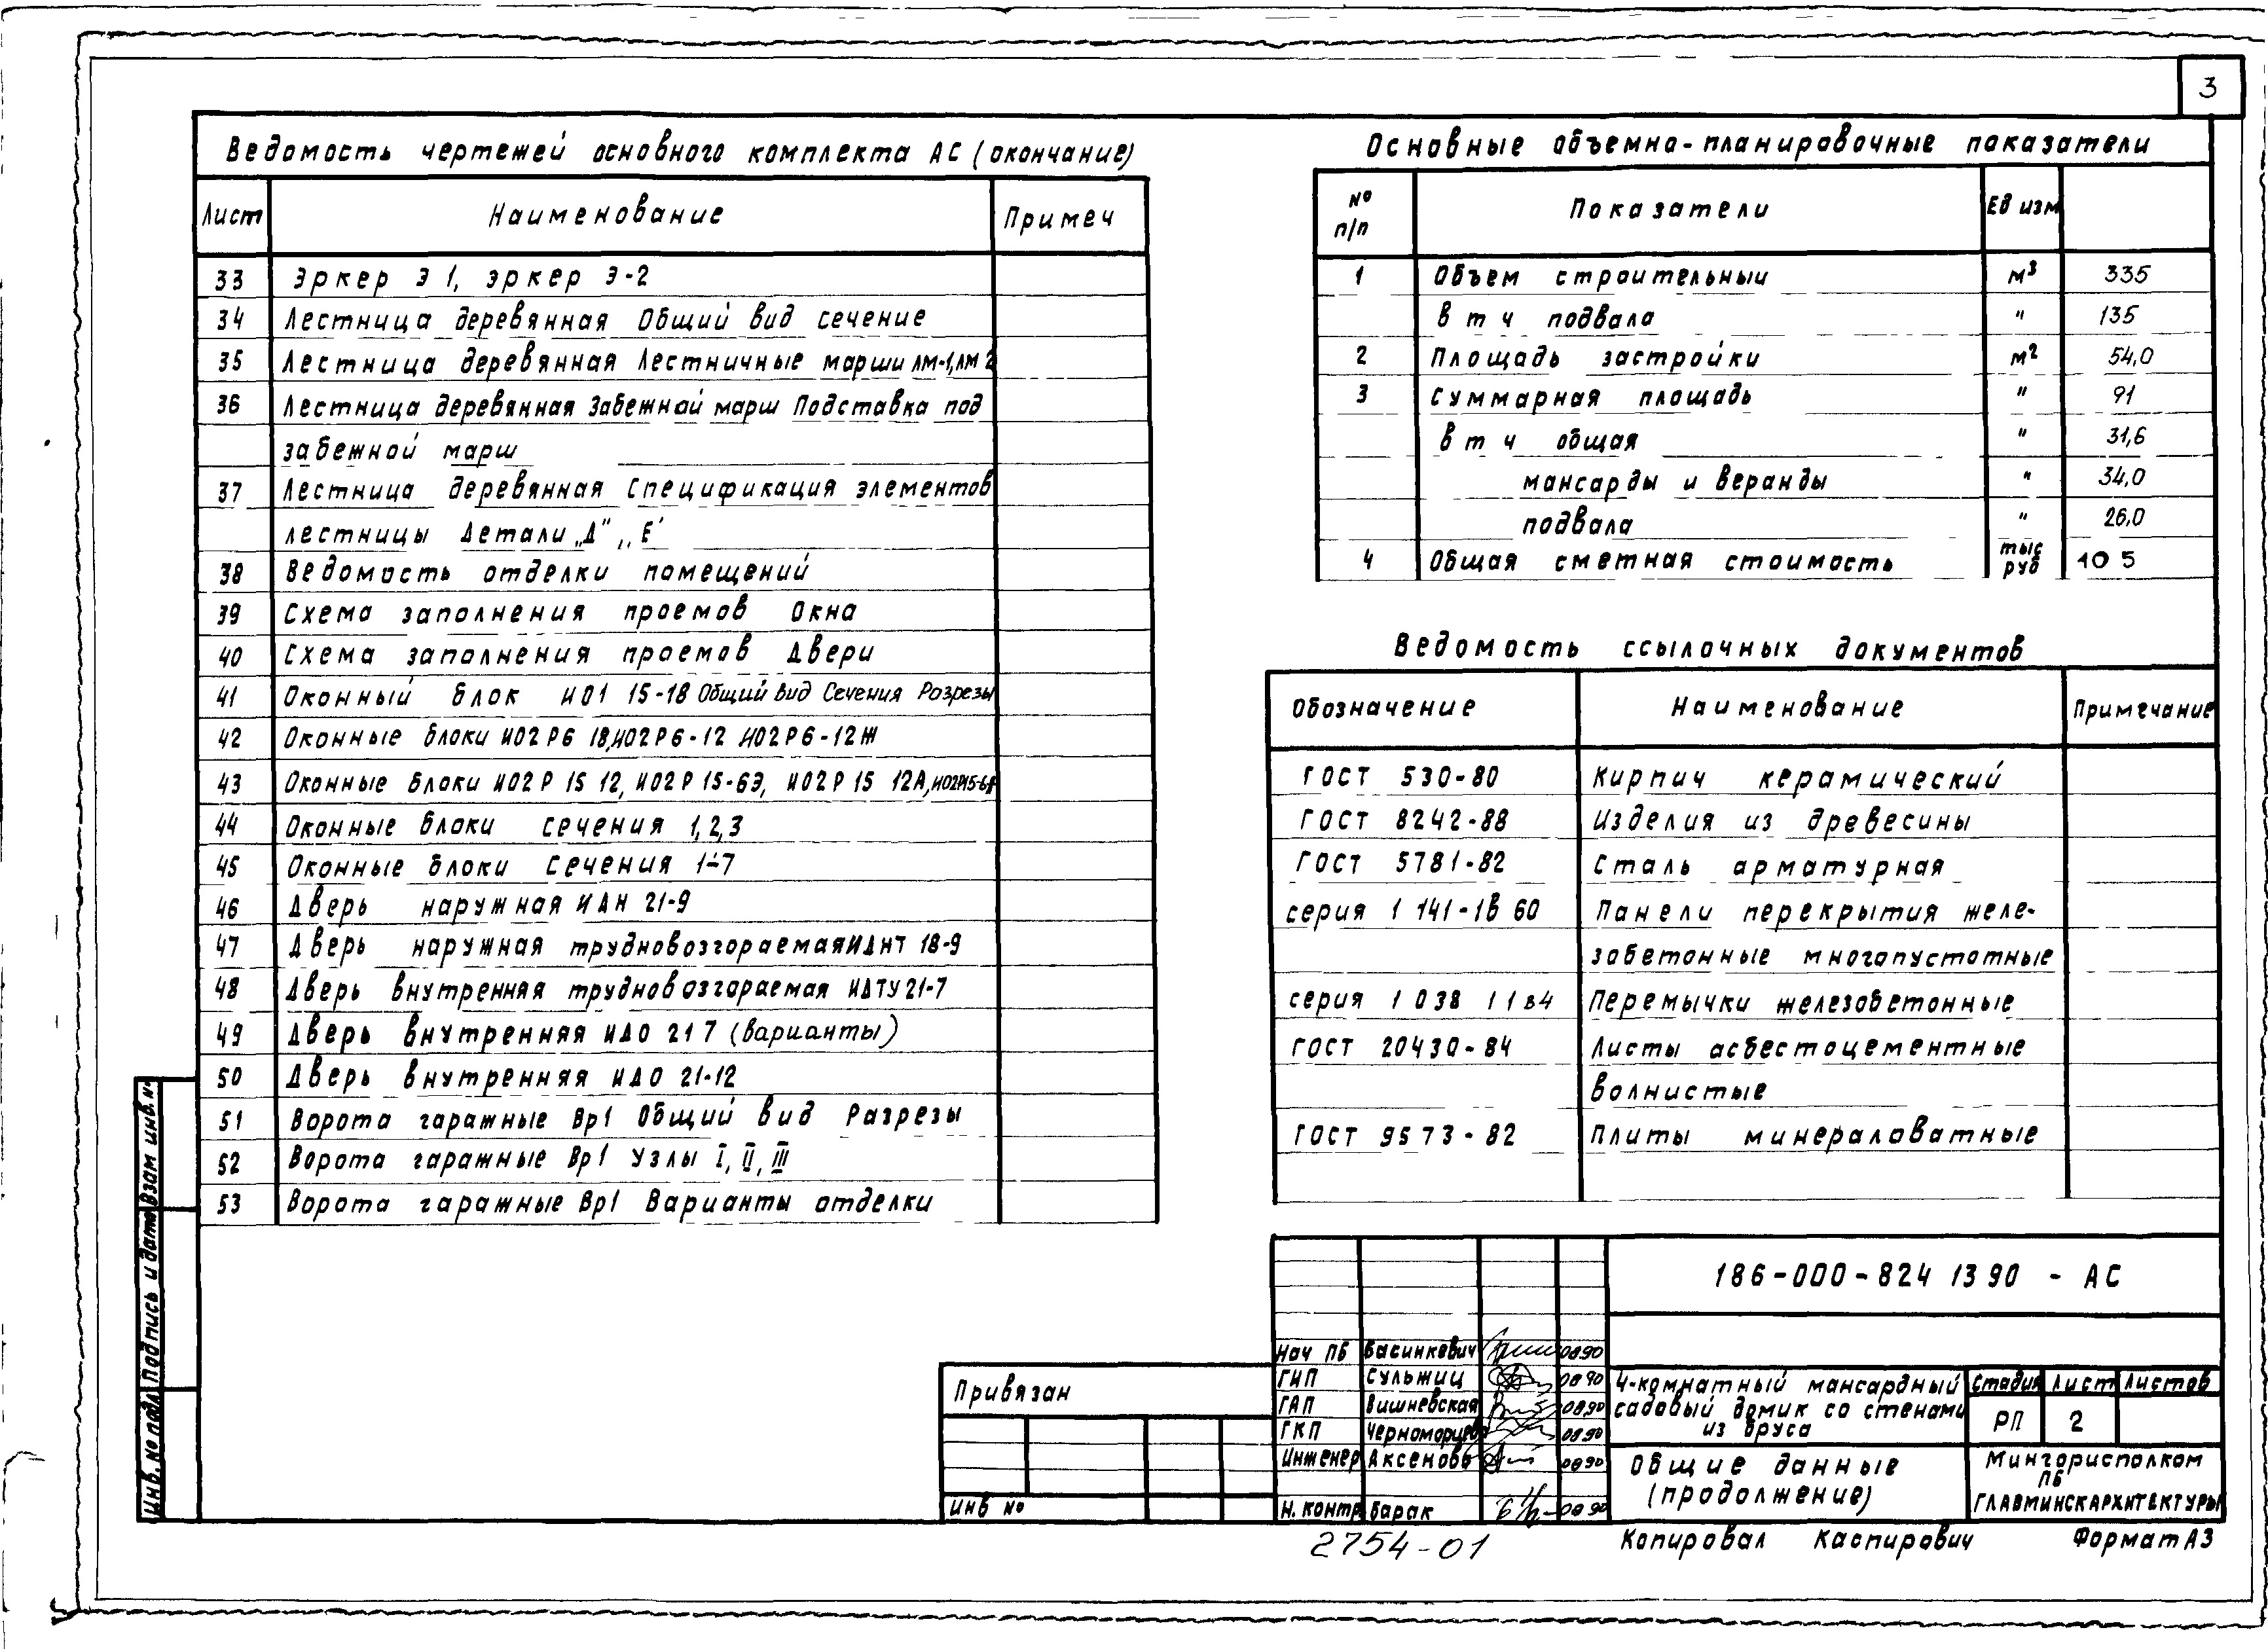 3
Ведомость чертежей основного комплекта АС (окончание)
Лист Наименование Примеч
33 Эркер Э 1, эркер Э-2
34 Лестница деревянная Общий вид сечение
35 Лестница деревянная Лестничные марши ЛМ-1, ЛМ 2
36 Лестница деревянная Забежной марш Подставка под
забежной марш
37 Лестница деревянная Спецификация элементов
лестницы Детали „Д" „Е"
38 Ведомость отделки помещений
39 Схема заполнения проемов Окна
40 Схема заполнения проемов Двери
41 Оконный блок ИО1 15-18 Общий вид Сечения Разрезы
42 Оконные блоки ИО2 Р6 18, ИО2 Р6-12 ИО2 Р6-12Ж
43 Оконные блоки ИО2 Р 15 12, ИО2 Р 15-6Э, ИО2 Р 15 12А,
44 Оконные блоки сечения 1,2,3
45 Оконные блоки сечения 1-7
46 Дверь наружная ИДН 21-9
47 Дверь наружная трудновозгораемая ИДНТ 18-9
48 Дверь внутренняя трудновозгораемая ИДТУ 21-7
49 Дверь внутренняя ИДО 21 7 (варианты)
50 Дверь внутренняя ИДО 21-12
51 Ворота гаражные Вр1 Общий вид Разрезы
52 Ворота гаражные Вр1 Узлы I, II, III
53 Ворота гаражные Вр1 Варианты отделки
Основные объемно-планировочные показатели
№ п/п Показатели Ед изм
1 Объем строительный м³ 335
в т ч подвала " 135
2 Площадь застройки м² 54,0
3 Суммарная площадь " 91
в т ч общая " 31,6
мансарды и веранды " 34,0
подвала " 26,0
4 Общая сметная стоимость тыс руб 10 5
Ведомость ссылочных документов
Обозначение Наименование Примечание
ГОСТ 530-80 Кирпич керамический
ГОСТ 8242-88 Изделия из древесины
ГОСТ 5781-82 Сталь арматурная
серия 1 141-1в 60 Панели перекрытия желе-
зобетонные многопустотные
серия 1 038 1 1 в4 Перемычки железобетонные
ГОСТ 20430-84 Листы асбестоцементные
волнистые
ГОСТ 9573-82 Плиты минераловатные
186-000-824 13 90 - АС
Нач ПБ Басинкевич 08 90
ГИП Сульжиц 08 90
ГАП Вишневская 08.90
ГКП Черноморцева 08.90
Инженер Аксенова 08 90
Н. контр Барак 08 90
4-комнатный мансардный
садовый домик со стенами
из бруса
Стадия Лист Листов
РП 2
Общие данные
(продолжение)
Мингорисполком
ПБ
ГЛАВМИНСКАРХИТЕКТУРЫ
Привязан
Инв №
Инв. № подл Подпись и дата Взам инв. №
2754-01
Копировал Каспирович Формат А3